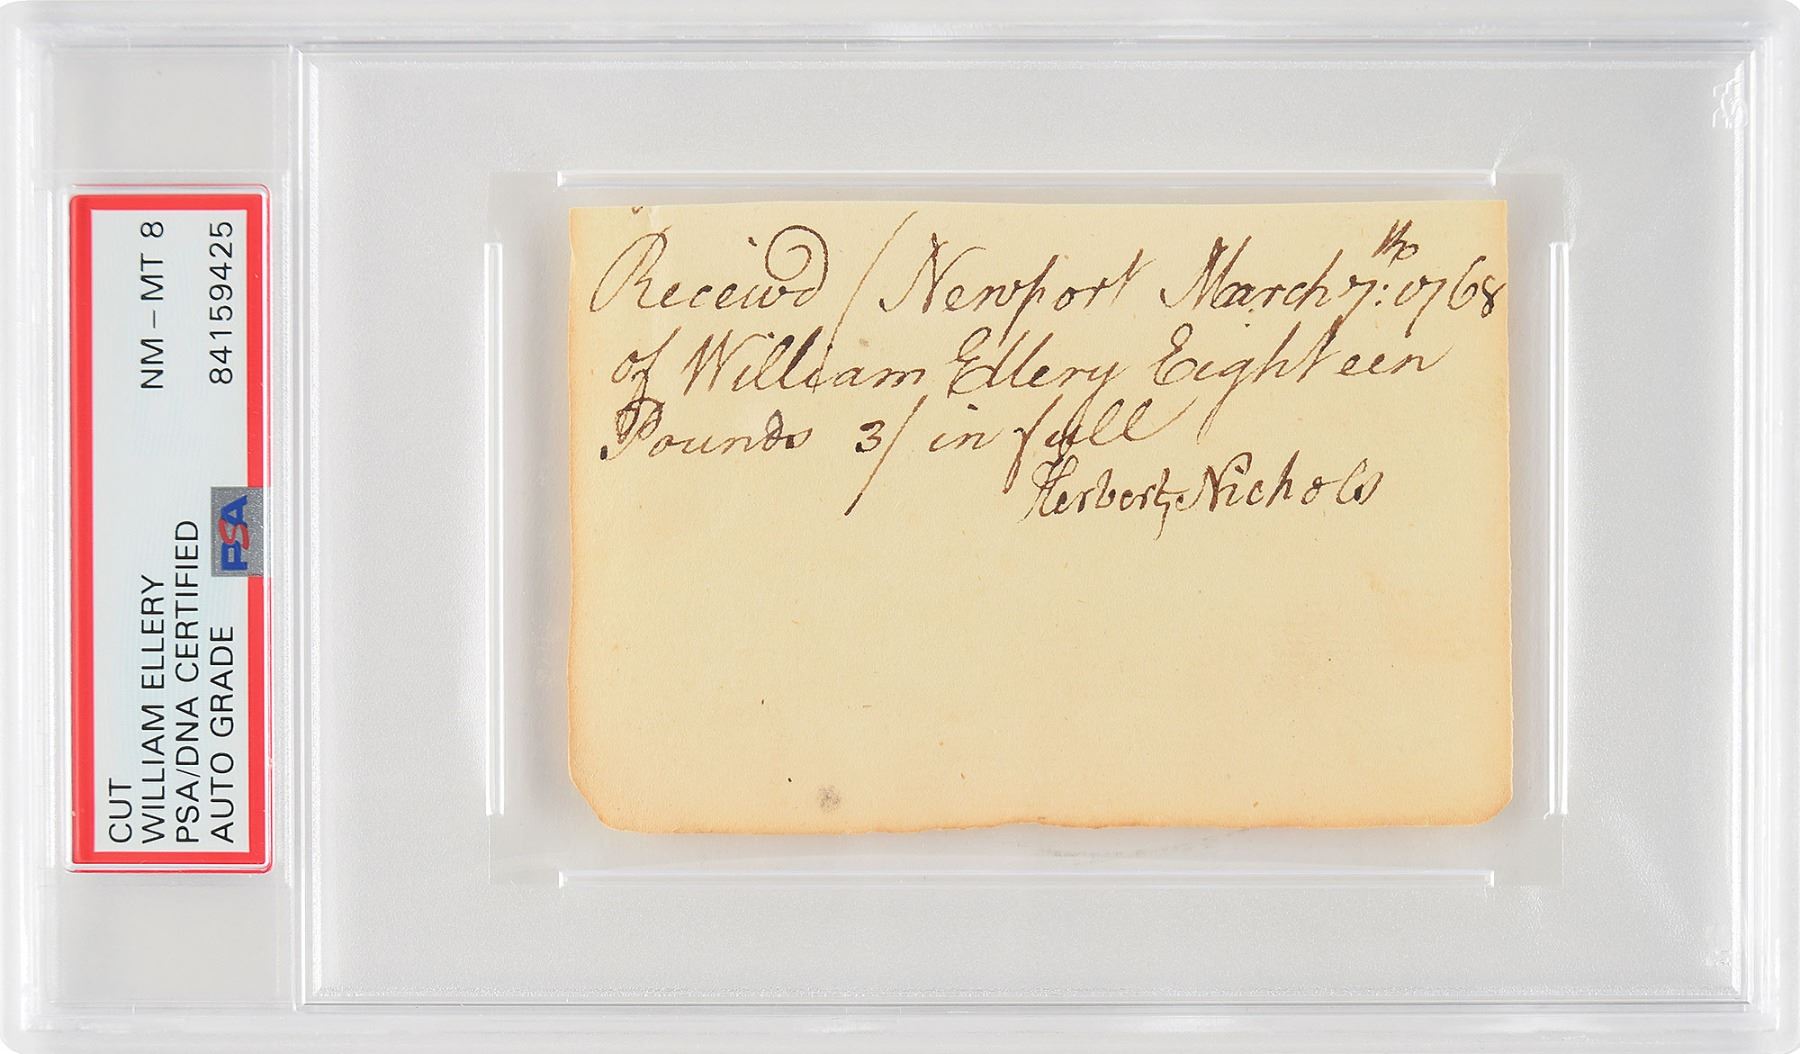 CUT
WILLIAM ELLERY
PSA/DNA CERTIFIED
AUTO GRADE
NM-MT 8
84159425
PSA
Receivd / Newport March 7:th 1768
of William Ellery Eighteen
Pounds 3/ in full
Herbert Nichols